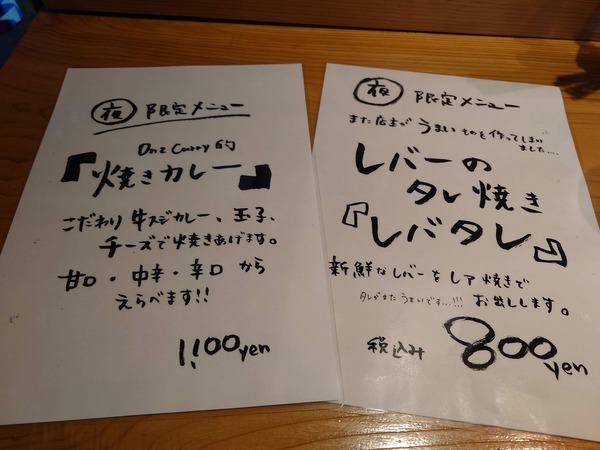 夜 限定メニュー
Donz Curry的
『焼きカレー』
こだわり牛スジカレー、玉子、
チーズで焼きあげます。
甘口・中辛・辛口から
えらべます!!
1,100yen
夜 限定メニュー
また店主がうまいものを作ってしまい
ました....
レバーの
タレ焼き
『レバタレ』
新鮮なレバーをレア焼きで
タレがまたうまいです...!!! お出しします。
税込み 800yen